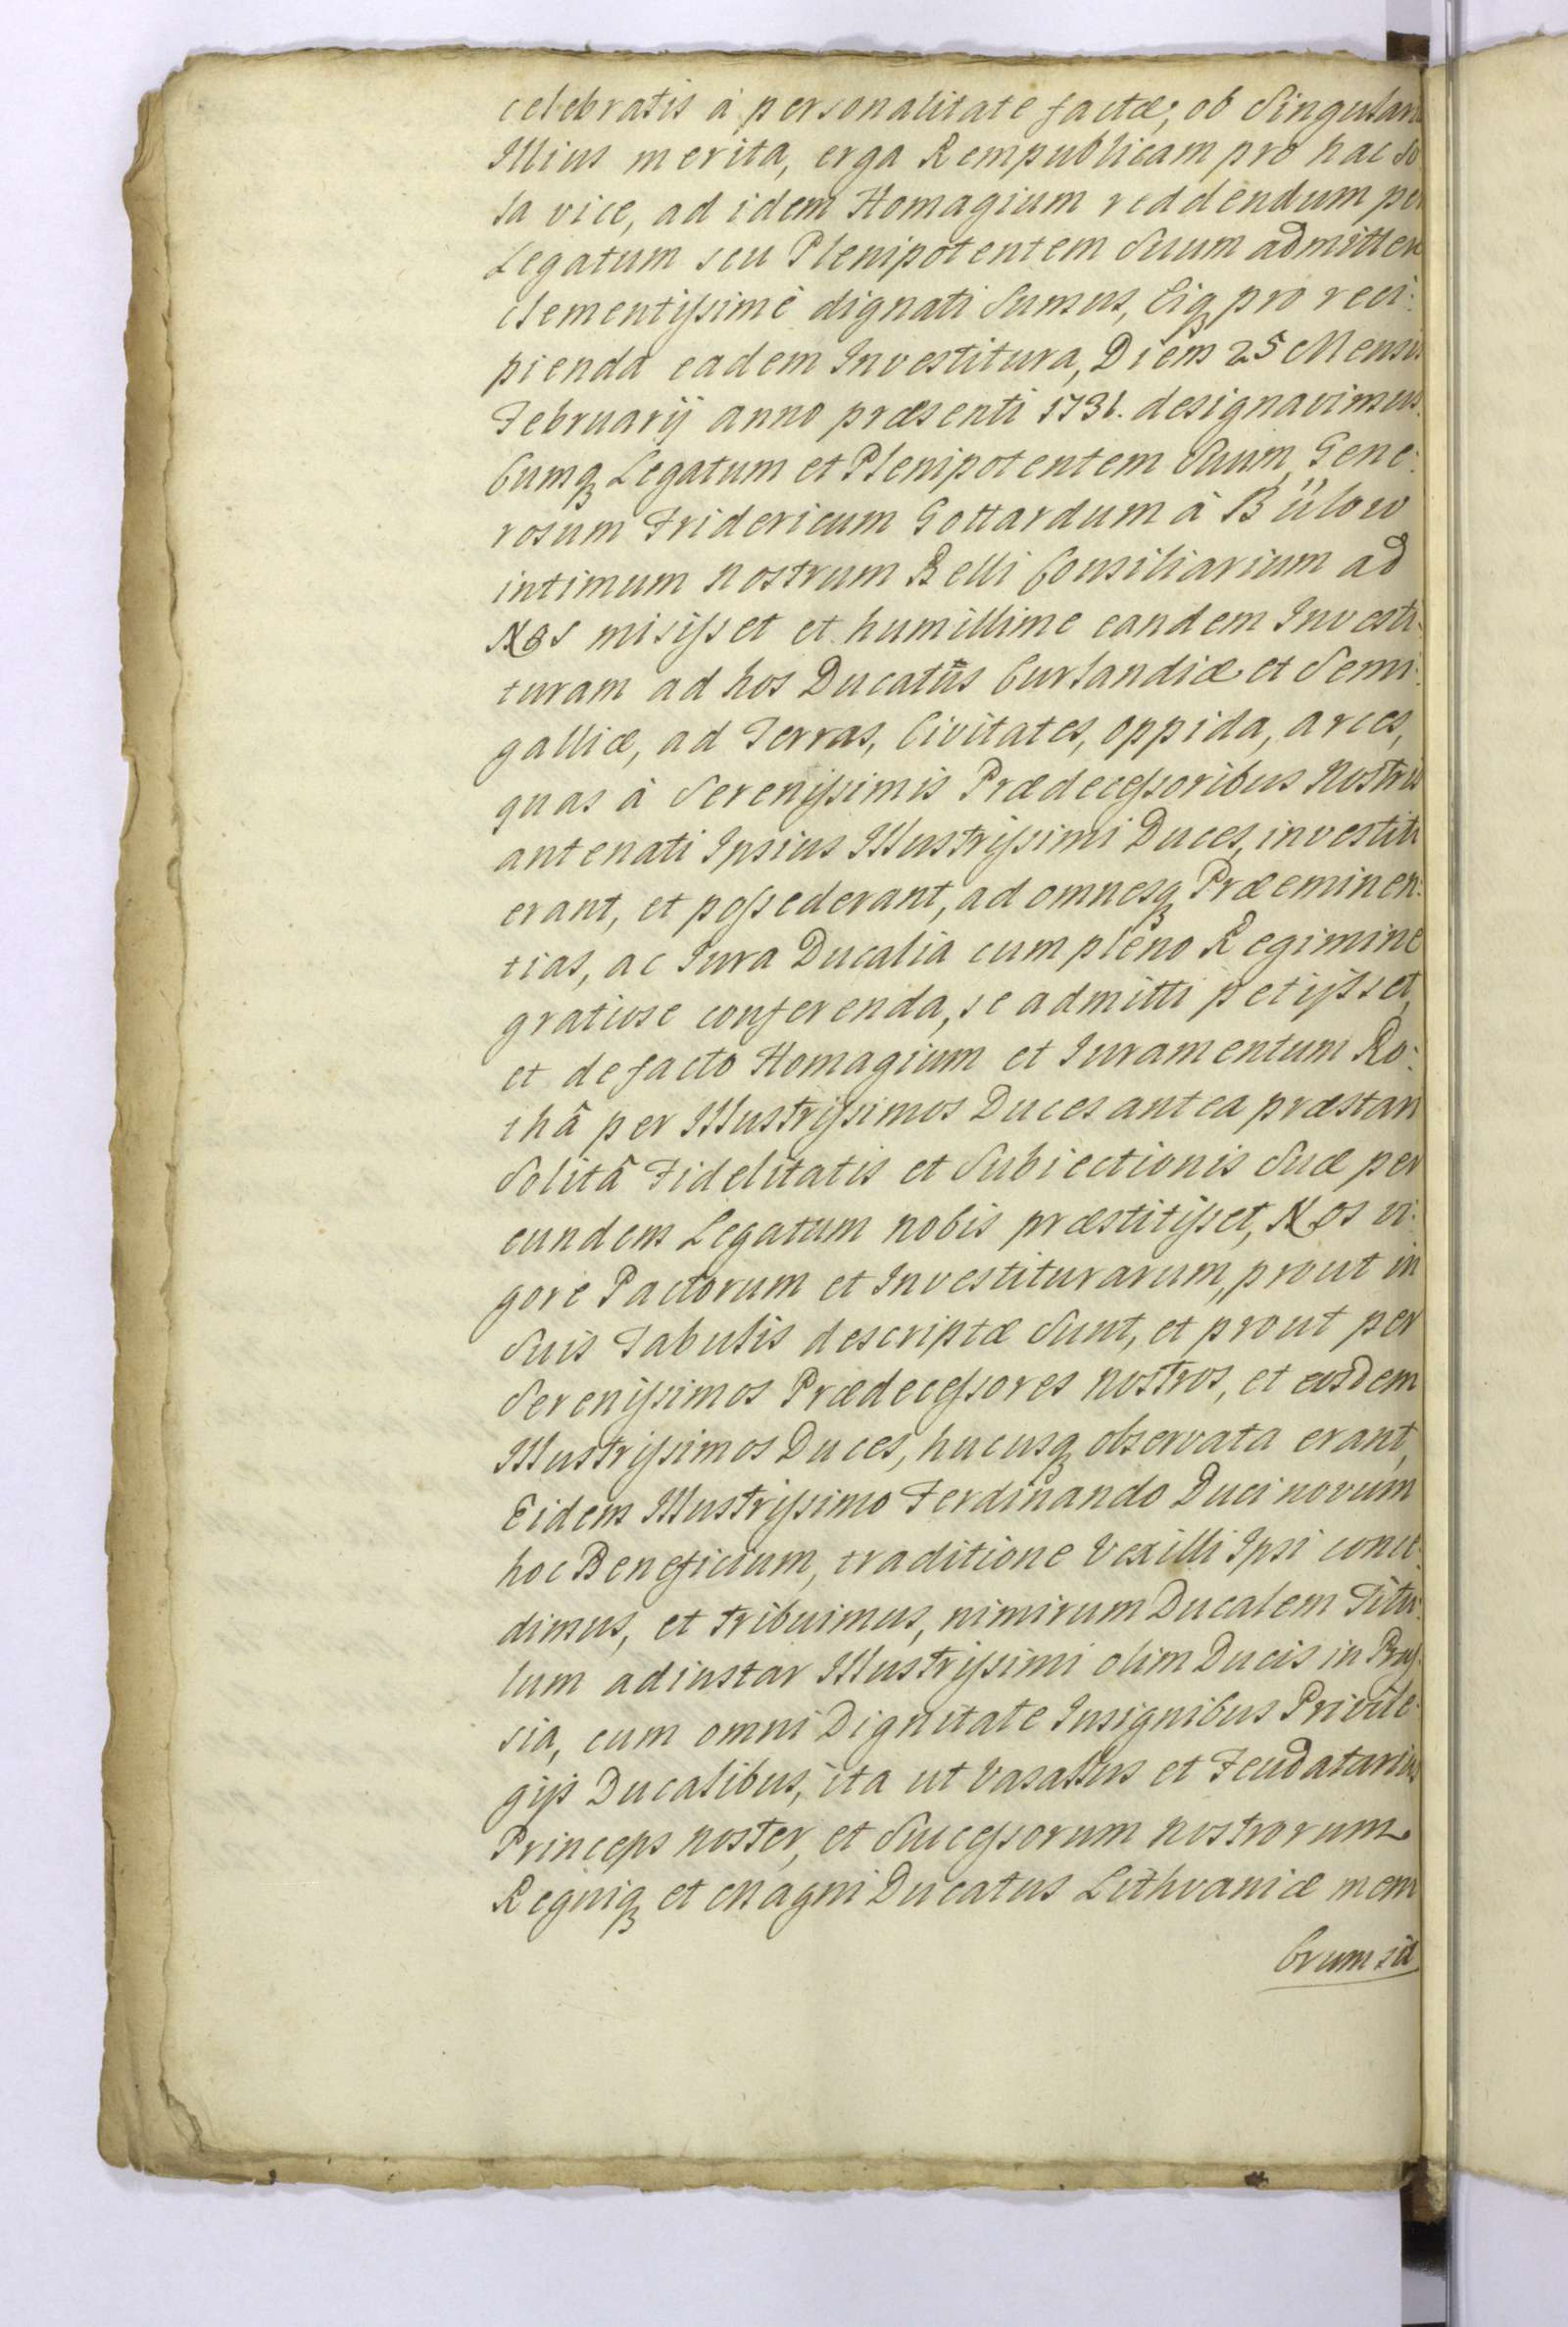 celebratis à personalitate factæ, ob Singulari
Illius merita, erga Rempublicam pro hac so
la vice, ad idem Homagium reddendum per
Legatum seu Plenipotentem Suum admitten
clementissimè dignati Sumus, Eiq pro reci:
pienda eadem Investitura, Diem 25 Mensis
Februarij anno præsenti 1731. designavimus.
Cumq Legatum et Plenipotentem Suum, Gene:
rosum Fridericum Gottardum à Bülow
intimum nostrum Belli Consiliarium ad
Nos misisset et humillime eandem Investi:
turam ad hos Ducatûs Curlandiæ et Semi:
galliæ, ad Terras, Civitates, oppida, arces,
quas à Serenissimis Prædecessoribus Nostris
antenati Ipsius Illustrissimi Duces, investiti
erant, et possederant, ad omnesq Præeminen:
tias, ac Iura Ducalia cum pleno Regimine
gratiose conferenda, se admitti petijsset,
et defacto Homagium et Iuramentum Ro:
thâ per Illustrissimos Duces antea præstari
Solitâ Fidelitatis et Subiectionis Suæ per
eundem Legatum nobis præstitisset, Nos vi:
gore Pactorum et Investiturarum, prout in
Suis Tabulis descriptæ Sunt, et prout per
Serenissimos Prædecessores nostros, et eosdem
Illustrissimos Duces, hucusq observata erant,
Eidem Illustrissimo Ferdinando Duci novum
hoc Beneficium, traditione Vexilli Ipsi conce:
dimus, et tribuimus, nimirum Ducalem Titu:
lum adinstar Illustrissimi olim Ducis in Prus
sia, cum omni Dignitate Insignibus Privile:
gijs Ducalibus, ita ut Vasallus et Feudatarius
Princeps noster, et Successorum nostrorum
Regniq et Magni Ducatus Lithvaniæ mem
brum sit